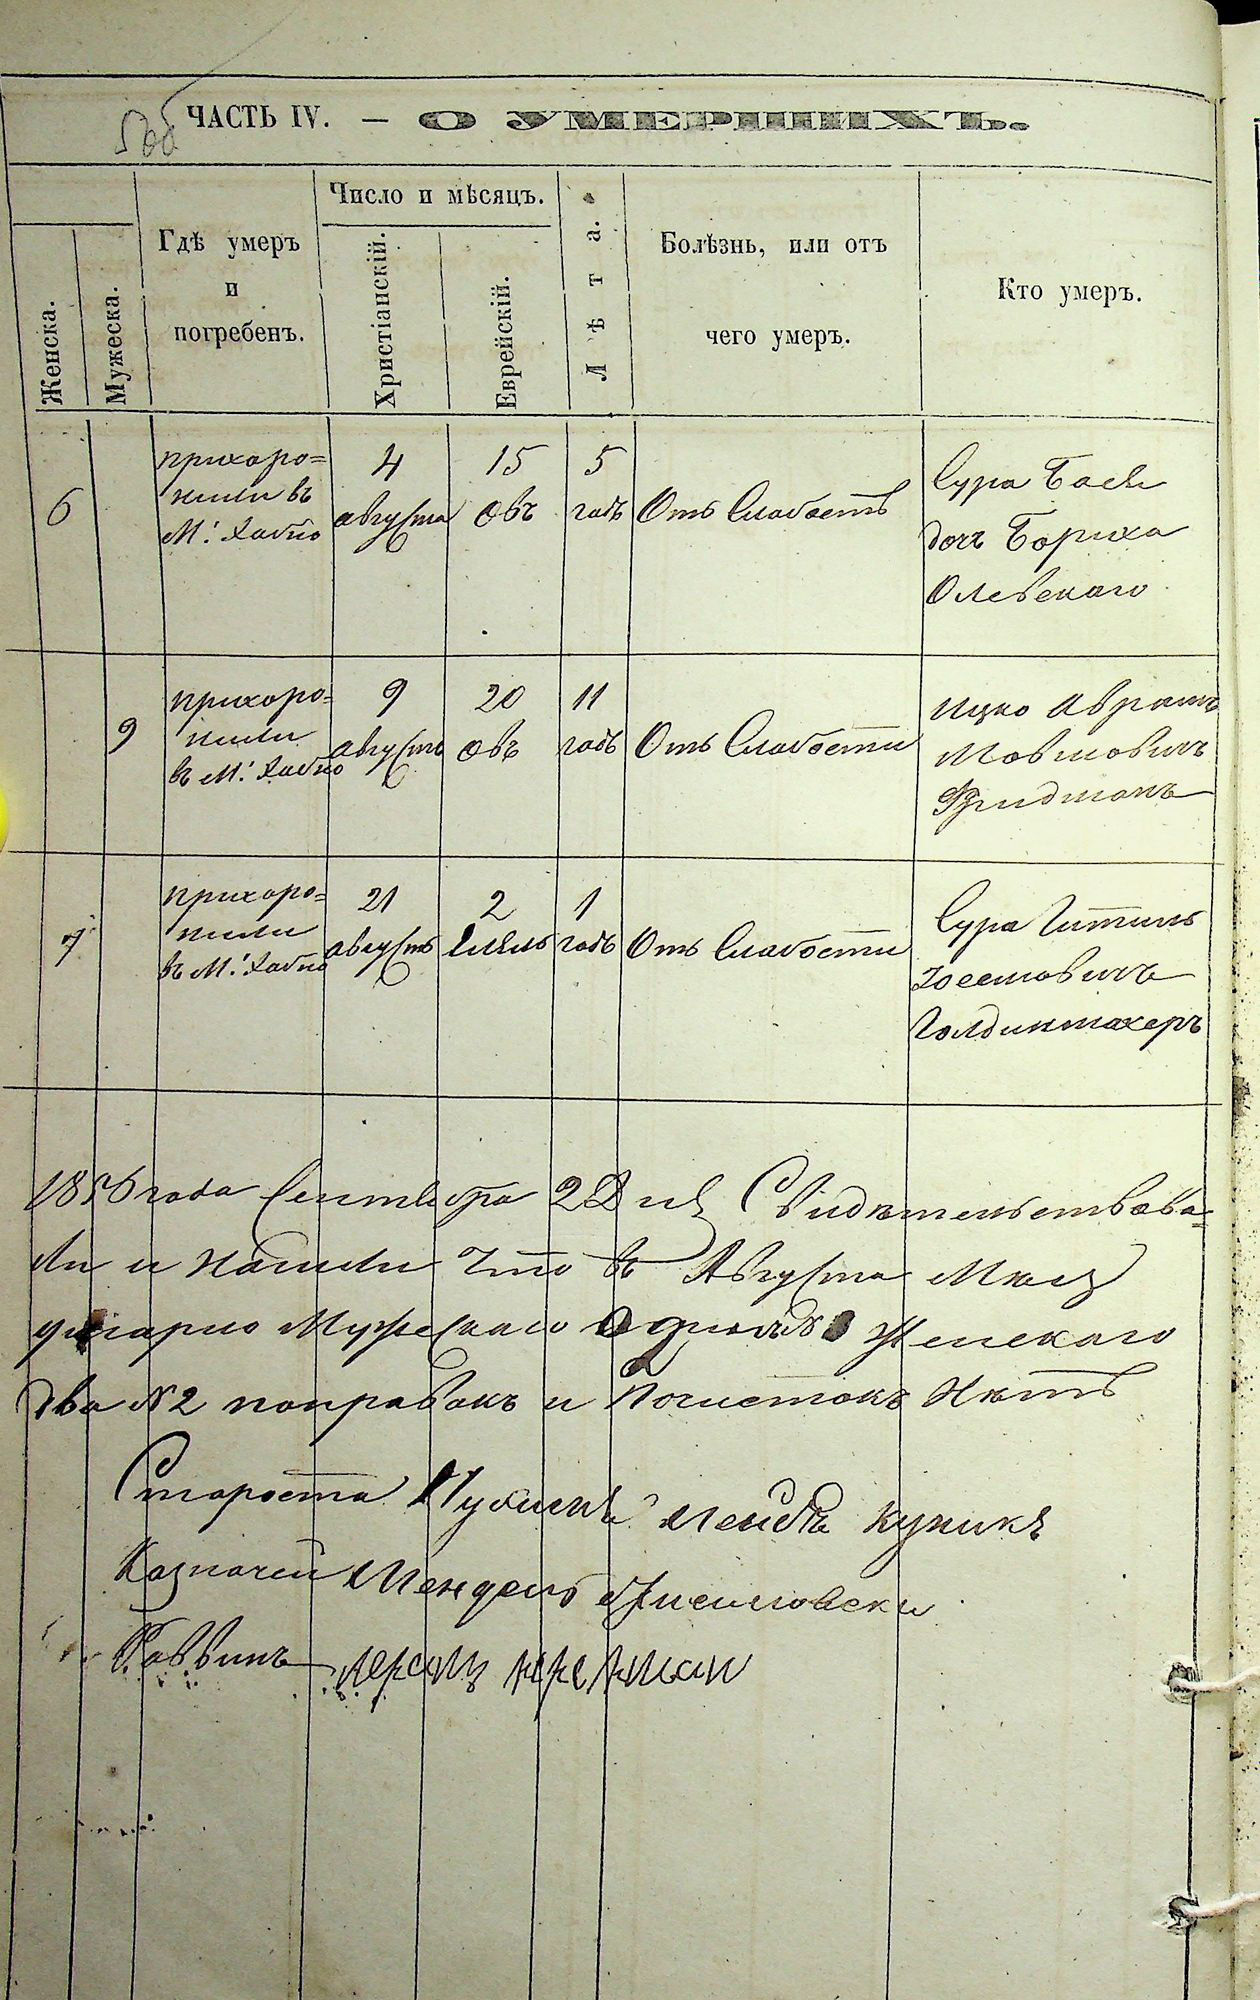 ЧАСТЬ IV. — О УМЕРШИХЪ.
Женска.
Мужеска.
Гдѣ умеръ
и
погребенъ.
Число и мѣсяцъ.
Христіанскій.
Еврейскій.
Лѣта.
Болѣзнь, или отъ
чего умеръ.
Кто умеръ.
6
прихоро=
нили въ
М: Хабно
4
августа
15
Овъ
5
годъ
Отъ Слабость
Сура Бася
дочъ Бориха
Олевскаго
9
прихоро=
нили
въ М: Хабно
9
августъ
20
Овъ
11
годъ
Отъ Слабости
Ицко Аврамъ
Мовшовичъ
Фридманъ
7
прихоро=
нили
въ М: Хабно
21
августъ
2
Елюль
1
годъ
Отъ Слабости
Сура Гитиль
Іосевовичъ
Голдинмахеръ
1856 года Сентября 2 Дня Свидѣтельствова=
ли и Нашли Что въ Августа
Мужескаго Одинъ № Женскаго
два № 2 поправокъ и Почистокъ Нѣтъ
Староста
Казначей Мендель
Раввинъ